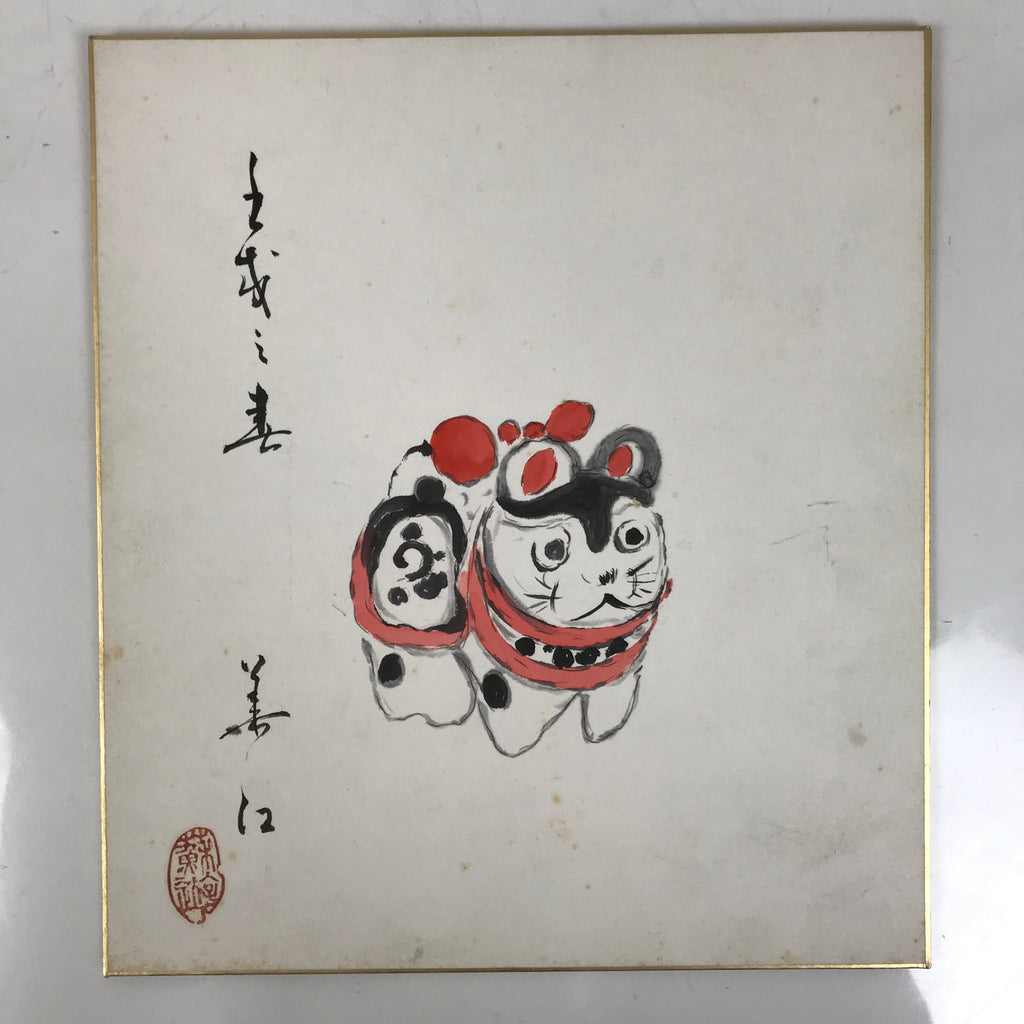 壬戌之春
美江